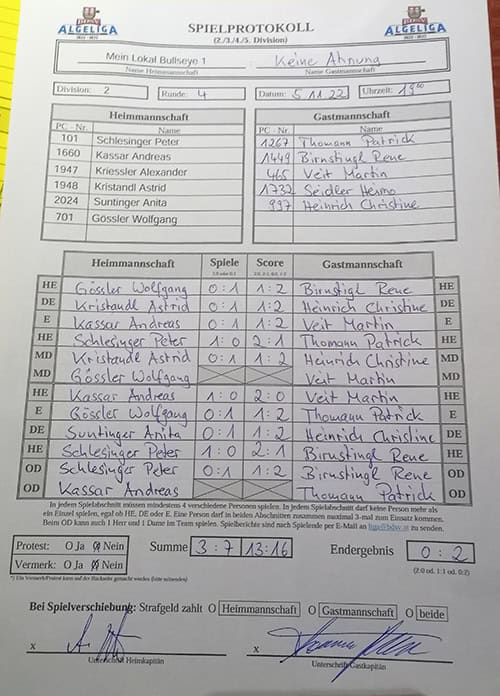 ALGELIGA SPIELPROTOKOLL ALGELIGA
(2./3./4./5. Division)
Mein Lokal Bullseye 1 Keine Ahnung
Name Heimmannschaft Name Gastmannschaft
Division: 2 Runde: 4 Datum: 5 11 22 Uhrzeit: 19⁰⁰
Heimmannschaft Gastmannschaft
PC - Nr. Name PC - Nr. Name
101 Schlesinger Peter 1267 Thomann Patrick
1660 Kassar Andreas 1449 Birnstingl Rene
1947 Kriessler Alexander 465 Veit Martin
1948 Kristandl Astrid 1732 Seidler Heimo
2024 Suntinger Anita 997 Heinrich Christine
701 Gössler Wolfgang
Heimmannschaft Spiele Score Gastmannschaft
HE Gössler Wolfgang 0:1 1:2 Birnstigl Rene HE
DE Kristandl Astrid 0:1 1:2 Heinrich Christine DE
E Kassar Andreas 0:1 1:2 Veit Martin E
HE Schlesinger Peter 1:0 2:1 Thomann Patrick HE
MD Kristandl Astrid 0:1 1:2 Heinrich Christine MD
MD Gössler Wolfgang Veit Martin MD
HE Kassar Andreas 1:0 2:0 Veit Martin HE
E Gössler Wolfgang 0:1 1:2 Thomann Patrick E
DE Suntinger Anita 0:1 1:2 Heinrich Christine DE
HE Schlesinger Peter 1:0 2:1 Birnstingl Rene HE
OD Schlesinger Peter 0:1 1:2 Birnstingl Rene OD
OD Kassar Andreas Thomann Patrick OD
In jedem Spielabschnitt müssen mindestens 4 verschiedene Personen spielen. In jedem Spielabschnitt darf keine Person mehr als
ein Einzel spielen, egal ob HE, DE oder E. Eine Person darf in beiden Abschnitten zusammen maximal 3-mal zum Einsatz kommen.
Beim OD kann auch 1 Herr und 1 Dame im Team spielen. Spielberichte sind nach Spielende per E-Mail an zu senden.
Protest: O Ja O Nein Summe 3:7 13:16 Endergebnis 0:2
Vermerk: O Ja O Nein (2:0 od. 1:1 od. 0:2)
*) Ein Vermerk/Protest kann auf der Rückseite gemacht werden (bitte ankreuzen)
Bei Spielverschiebung: Strafgeld zahlt O Heimmannschaft O Gastmannschaft O beide
x x
Unterschrift Heimkapitän Unterschrift Gastkapitän